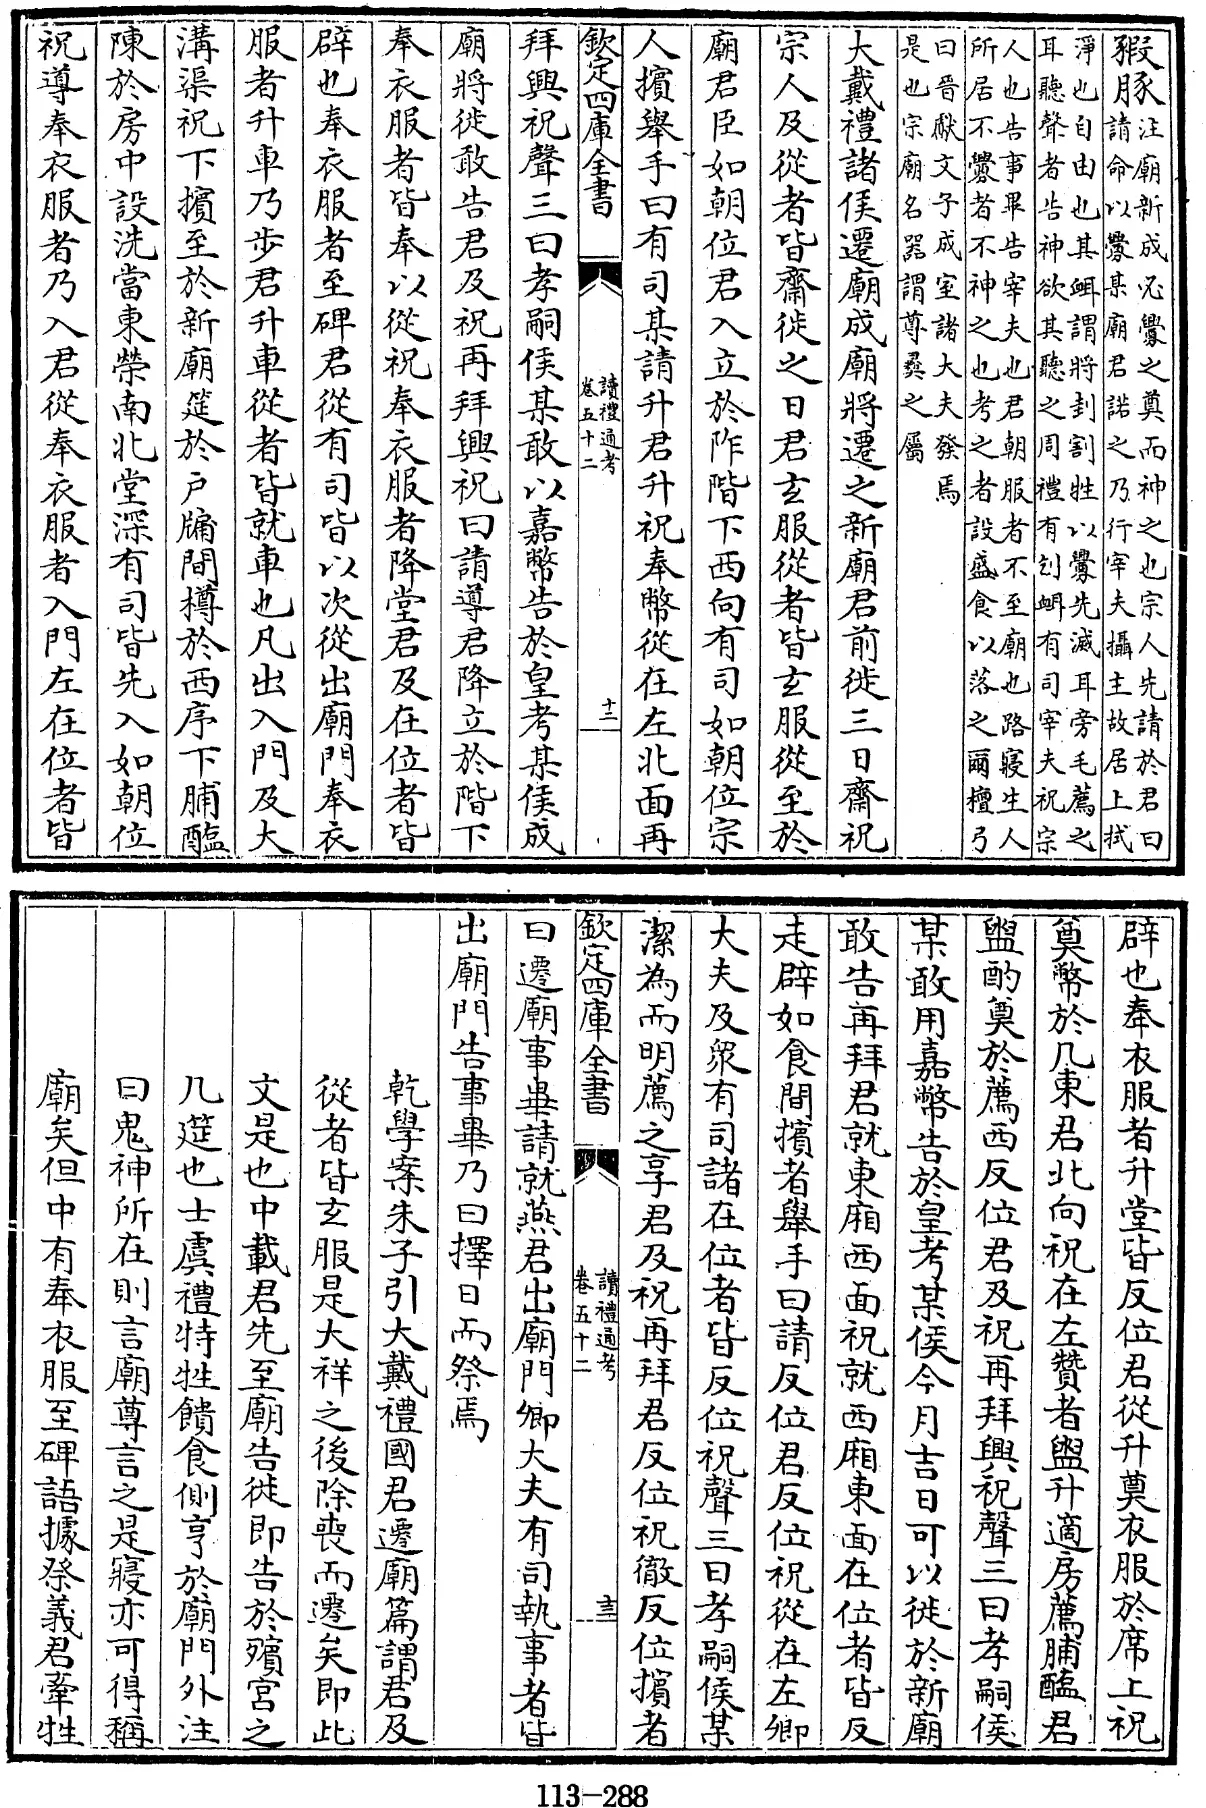 豭豚注廟新成必釁之奠而神之也宗人先請於君曰
請命以釁某廟君諾之乃行宰夫攝主故居上拭
淨也自由也其衈謂將刲割牲以釁先滅耳旁毛薦之
耳聽聲者告神欲其聽之周禮有刉衈有司宰夫祝宗
人也告事畢告宰夫也君朝服者不至廟也路寢生人
所居不釁者不神之也考之者設盛食以落之爾檀弓
曰晉獻文子成室諸大夫發焉
是也宗廟名器謂尊彝之屬
大戴禮諸侯遷廟成廟將遷之新廟君前徙三日齋祝
宗人及從者皆齋徙之日君玄服從者皆玄服從至於
廟君臣如朝位君入立於阼階下西向有司如朝位宗
人擯舉手曰有司某請升君升祝奉幣從在左北面再
欽定四庫全書
讀禮通考
卷五十二
十二
拜興祝聲三曰孝嗣侯某敢以嘉幣告於皇考某侯成
廟將徙敢告君及祝再拜興祝曰請導君降立於階下
奉衣服者皆奉以從祝奉衣服者降堂君及在位者皆
辟也奉衣服者至碑君從有司皆以次從出廟門奉衣
服者升車乃步君升車從者皆就車也凡出入門及大
溝渠祝下擯至於新廟筵於戶牖間樽於西序下脯醢
陳於房中設洗當東榮南北堂深有司皆先入如朝位
祝導奉衣服者乃入君從奉衣服者入門左在位者皆
辟也奉衣服者升堂皆反位君從升奠衣服於席上祝
奠幣於几東君北向祝在左贊者盥升適房薦脯醢君
盥酌奠於薦西反位君及祝再拜興祝聲三曰孝嗣侯
某敢用嘉幣告於皇考某侯今月吉日可以徙於新廟
敢告再拜君就東廂西面祝就西廂東面在位者皆反
走辟如食間擯者舉手曰請反位君反位祝從在左卿
大夫及眾有司諸在位者皆反位祝聲三曰孝嗣侯某
潔為而明薦之享君及祝再拜君反位祝徹反位擯者
欽定四庫全書
讀禮通考
卷五十二
十三
曰遷廟事畢請就燕君出廟門卿大夫有司執事者皆
出廟門告事畢乃曰擇日而祭焉
乾學案朱子引大戴禮國君遷廟篇謂君及
從者皆玄服是大祥之後除喪而遷矣即此
文是也中載君先至廟告徙即告於殯宮之
几筵也士虞禮特牲饋食側亨於廟門外注
曰鬼神所在則言廟尊言之是寢亦可得稱
廟矣但中有奉衣服至碑語據祭義君牽牲
113-288